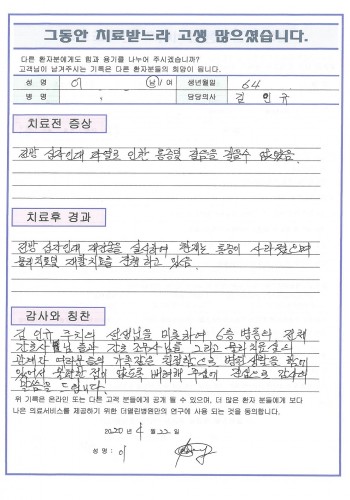 그동안 치료받느라 고생 많으셨습니다.
다른 환자분에게도 힘과 용기를 나누어 주시겠습니까?
고객님이 남겨주시는 기록은 다른 환자분들의 희망이 됩니다.
성 명 이 남/여 생년월일 64
병 명 담당의사 김 인 규
치료전 증상
전방 십자인대 파열로 인한 통증및 걸음을 걸을수 없었음.
치료후 경과
전방 십자인대 재건술을 실시하여 현재는 통증이 사라졌으며
물리치료및 재활치료를 진행하고 있음.
감사와 칭찬
김 인규 주치의 선생님을 비롯하여 6층 병동의 전체
간호사님들과 간호 조무사님들 그리고 물리치료실의
관계자 여러분들의 가족같은 친절함으로 병원생활을 함에
있어서 불편한 점이 없도록 배려해 주심에 진심으로 감사의
말씀을 드립니다.
위 기록은 온라인 또는 다른 고객 분들에게 공개 될 수 있으며, 더 많은 환자 분들에게 보다
나은 의료서비스를 제공하기 위한 더열린병원만의 연구에 사용 되는 것을 동의합니다.
2020 년 4 월 22 일
성 명 : 이